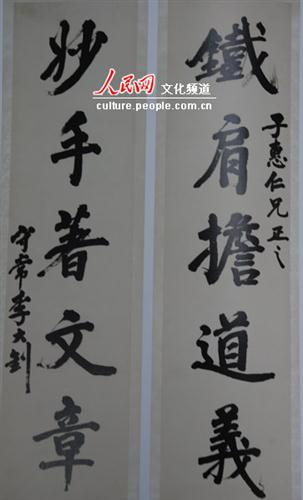 鐵肩擔道義
子惠仁兄正之
妙手著文章
守常李大釗
人民网 文化频道
culture.people.com.cn